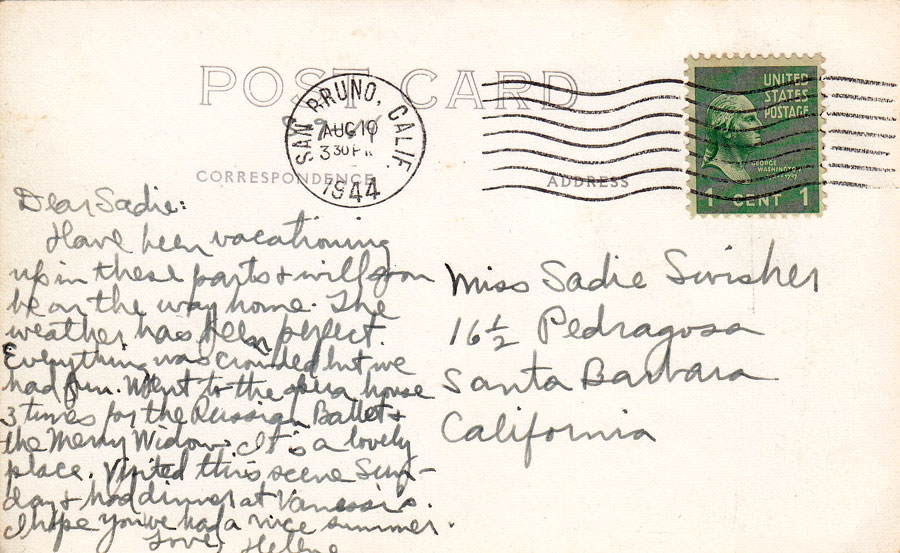 POST CARD
SAN BRUNO, CALIF.
AUG 10
3 30 PM
1944
UNITED
STATES
POSTAGE
GEORGE
WASHINGTON
1 CENT 1
CORRESPONDENCE
ADDRESS
Dear Sadie:
Have been vacationing
up in these parts & will soon
be on the way home. The
weather has been perfect.
Everything was crowded but we
had fun. Went to the opera house
3 times for the Russian Ballet &
the Merry Widow. It is a lovely
place. Visited this scene Sun-
day & had dinner at Vanessi's.
I hope you've had a nice summer.
Love, Hellene
Miss Sadie Swisher
16½ Pedragosa
Santa Barbara
California